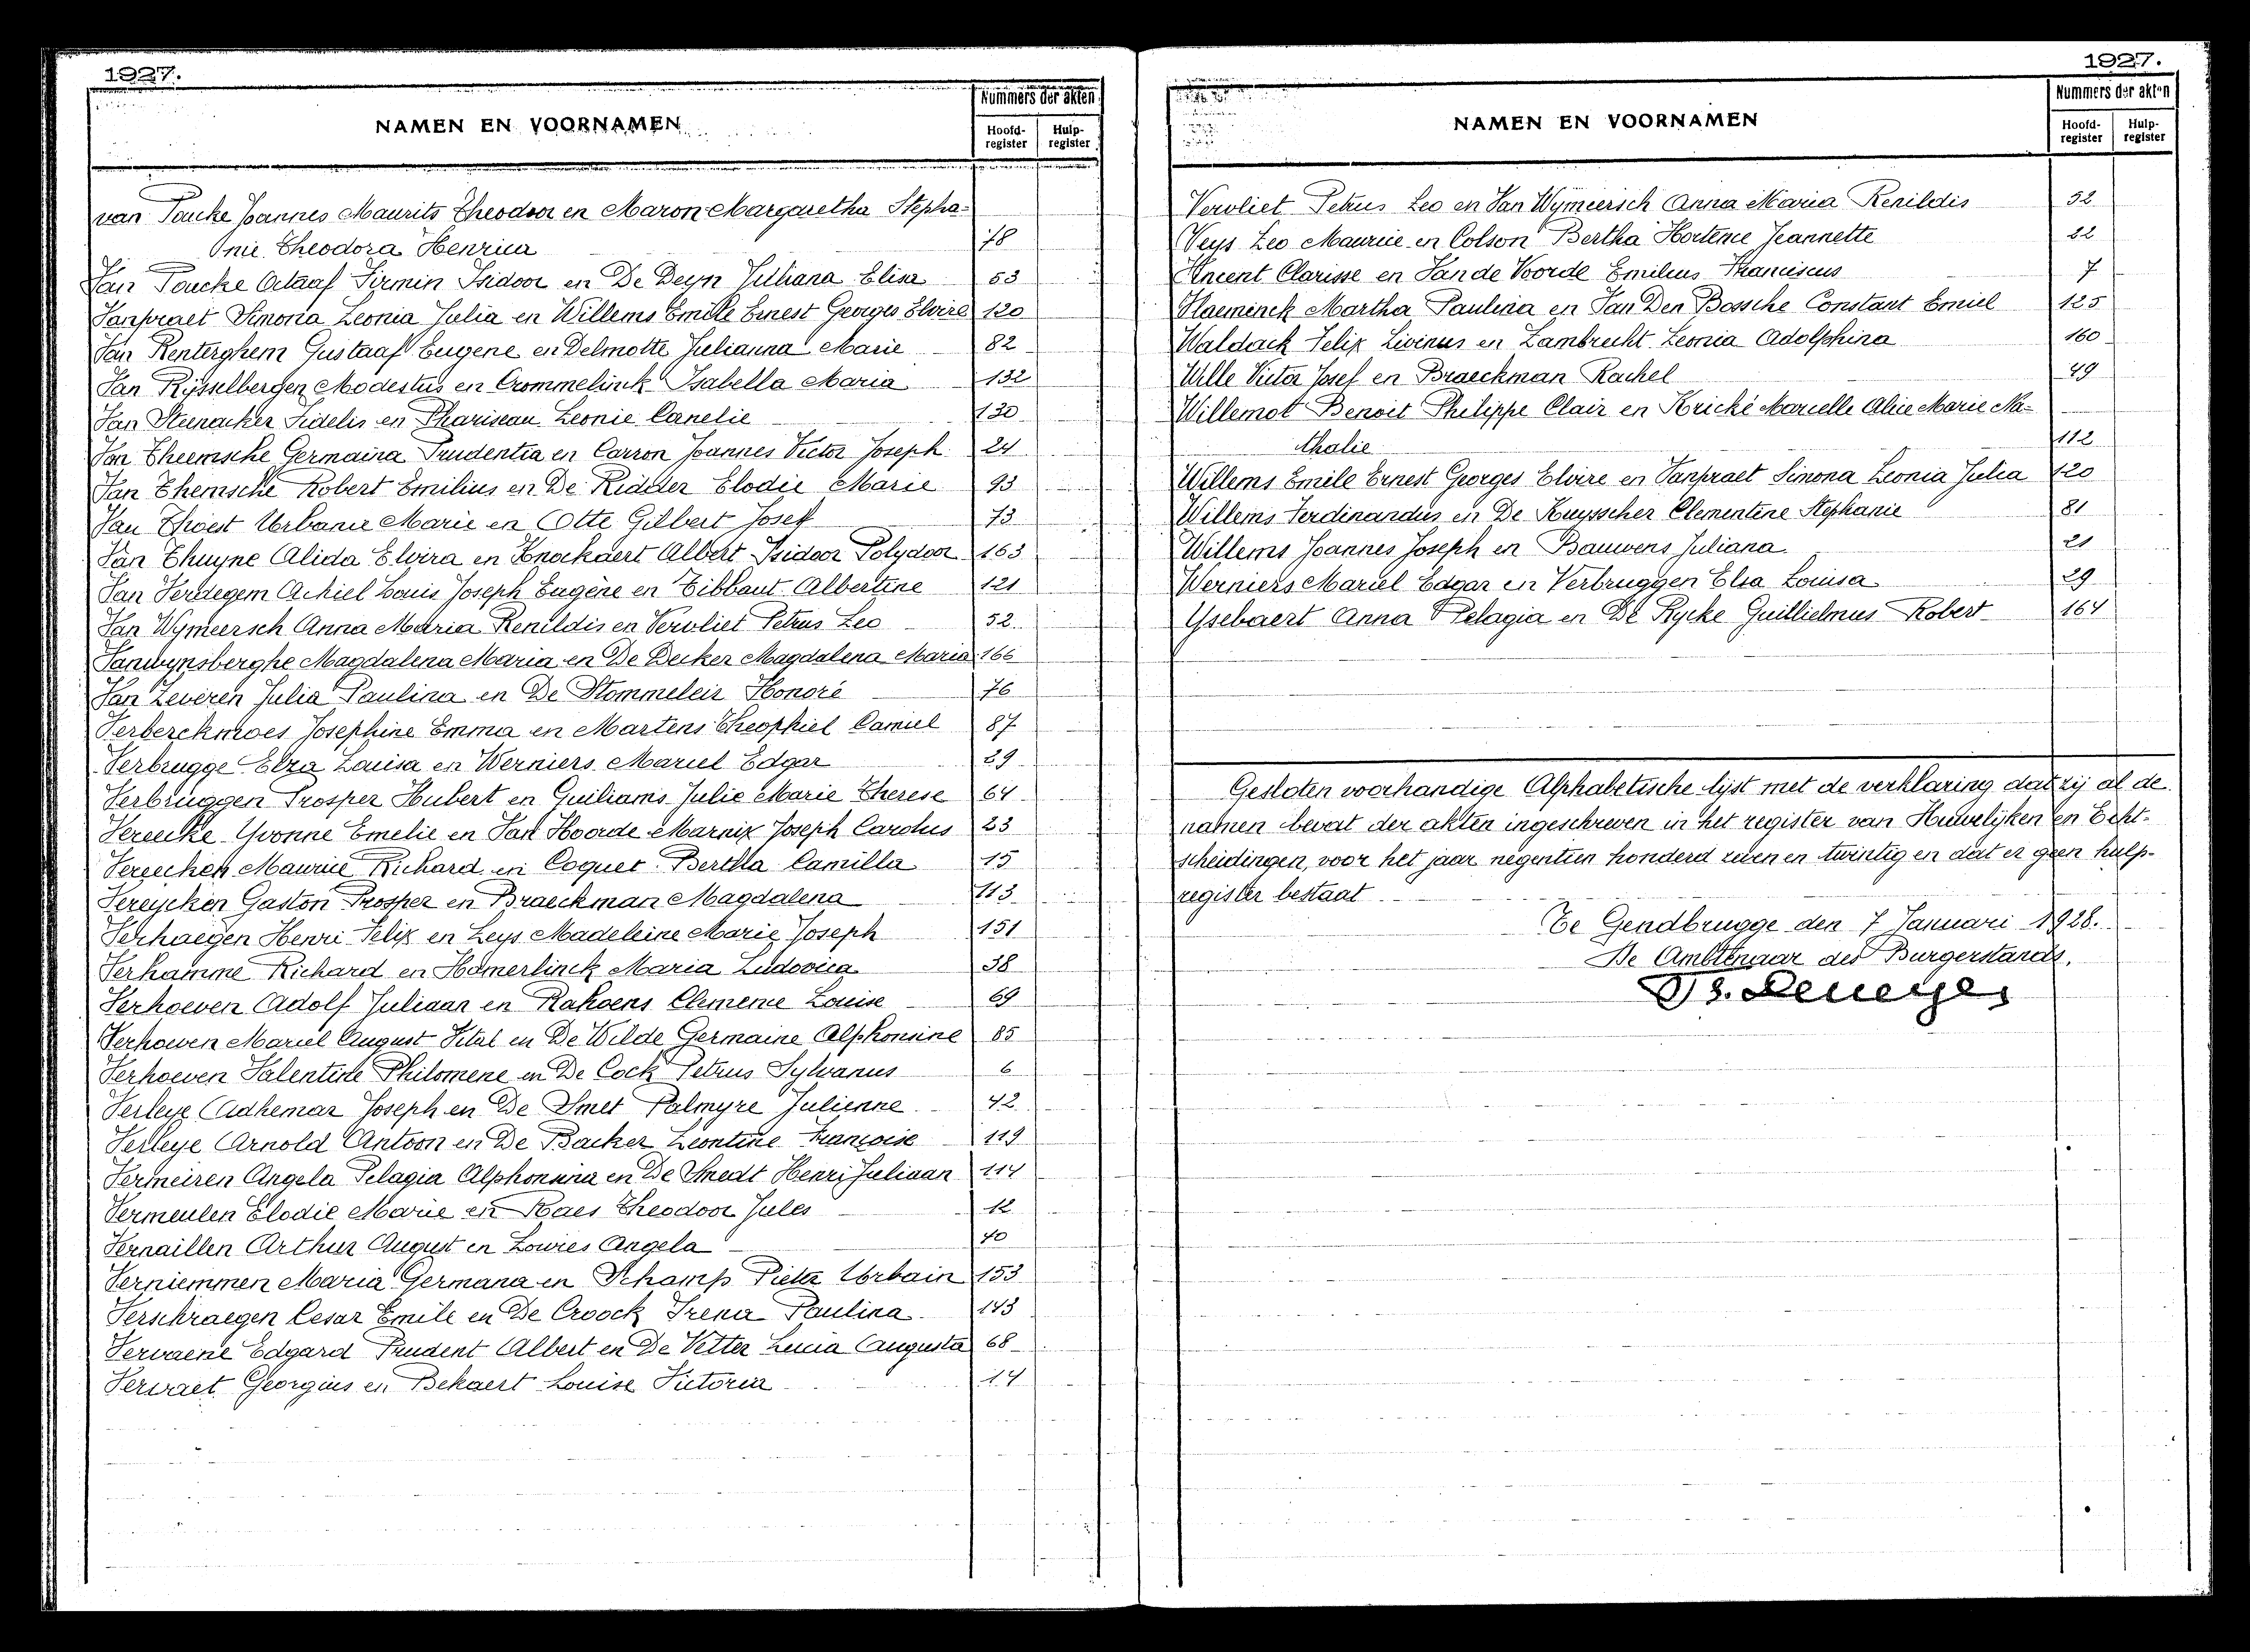 1927.
NAMEN EN VOORNAMEN
Nummers der akten
Hoofd-register
Hulp-register
van Poucke Joannes Maurits Theodoor en Maron Margaretha Stepha-
nie Theodora Henrica 78
Van Poucke Octaaf Firmin Isidoor en De Deyn Julliana Elisa 53
Vanpraet Simona Leonia Julia en Willems Emile Ernest Georges Elvire 120
Van Renterghem Gustaaf Eugene en Delmotte Julianna Marie 82
Van Rysselbergen Modestus en Crommelinck Isabella Maria 132
Van Steenacker Fidelis en Phariseau Leonie Canelie 130
Van Theemsche Germaina Prudentia en Carron Joannes Victor Joseph 24
Van Themsche Robert Emilius en De Ridder Elodie Marie 93
Van Thoest Urbanie Marie en Otte Gilbert Josef 73
Van Thuyne Alida Elvira en Knockaert Albert Isidoor Polydoor 163
Van Verdegem Achiel Louis Joseph Eugène en Tibbaut Albertine 121
Van Wymeersch Anna Maria Renildis en Vervliet Petrus Leo 52
Vanwynsberghe Magdalena Maria en De Decker Magdalena Maria 166
Van Zeveren Julia Paulina en De Stommeleir Honoré 76
Verberckmoes Josephine Emma en Martens Theophiel Camiel 87
Verbrugge Elza Louisa en Werniers Marcel Edgar 29
Verbruggen Prosper Hubert en Guiliams Julie Marie Therese 64
Vereecke Yvonne Emelie en Van Hoorde Marnix Joseph Carolus 23
Vereecken Maurice Richard en Coquet Bertha Camilla 15
Vereycken Gaston Prosper en Braeckman Magdalena 113
Verhaegen Henri Felix en Leys Madeleine Marie Joseph 151
Verhamme Richard en Hamerlinck Maria Ludovica 38
Verhoeven Adolf Juliaan en Rahoens Clemence Louise 69
Verhoeven Marcel August Vital en De Wilde Germaine Alphonsine 85
Verhoeven Valentine Philomene en De Cock Petrus Sylvanus 6
Verleye Adhemar Joseph en De Smet Palmyre Julienne 42
Verleye Arnold Antoon en De Backer Leontine Françoise 119
Vermeiren Angela Pelagia Alphonsina en De Smedt Henri Juliaan 114
Vermeulen Elodie Marie en Raes Theodoor Jules 12
Vernaillen Arthur August en Lowies Angela 40
Verniemmen Maria Germana en Schamp Pieter Urbain 153
Verschraegen Cesar Emile en De Croock Irena Paulina 143
Vervaene Edgard Prudent Albert en De Vetter Lucia Augusta 68
Vervaet Georgius en Bekaert Louise Victoria 14
1927.
NAMEN EN VOORNAMEN
Nummers der akten
Hoofd-register
Hulp-register
Vervliet Petrus Leo en Van Wymeersch Anna Maria Renildis 52
Veys Leo Maurice en Colson Bertha Hortense Jeannette 22
Vincent Clarisse en Van de Voorde Emilius Franciscus 7
Vlaeminck Martha Paulina en Van Den Bossche Constant Emiel 125
Waldack Felix Livinus en Lambrecht Leonia Adolphina 160
Wille Victor Josef en Braeckman Rachel 49
Willemot Benoit Philippe Clair en Krické Marcelle Alice Marie Na-
thalie 112
Willems Emile Ernest Georges Elvire en Vanpraet Simona Leonia Julia 120
Willems Ferdinandus en De Kuysscher Clementine Stephanie 81
Willems Joannes Joseph en Bauwens Juliana 21
Werniers Marcel Edgar en Verbruggen Elsa Louisa 29
Ysebaert Anna Pelagia en De Rycke Guillielmus Robert 164
Gesloten voorhandige Alphabetische lijst met de verklaring dat zij al de
namen bevat der akten ingeschreven in het register van Huwelijken en Echt-
scheidingen, voor het jaar negentien honderd zeven en twintig en dat er geen hulp-
register bestaat
Te Gendbrugge den 7 Januari 1928.
De Ambtenaar des Burgerstands,